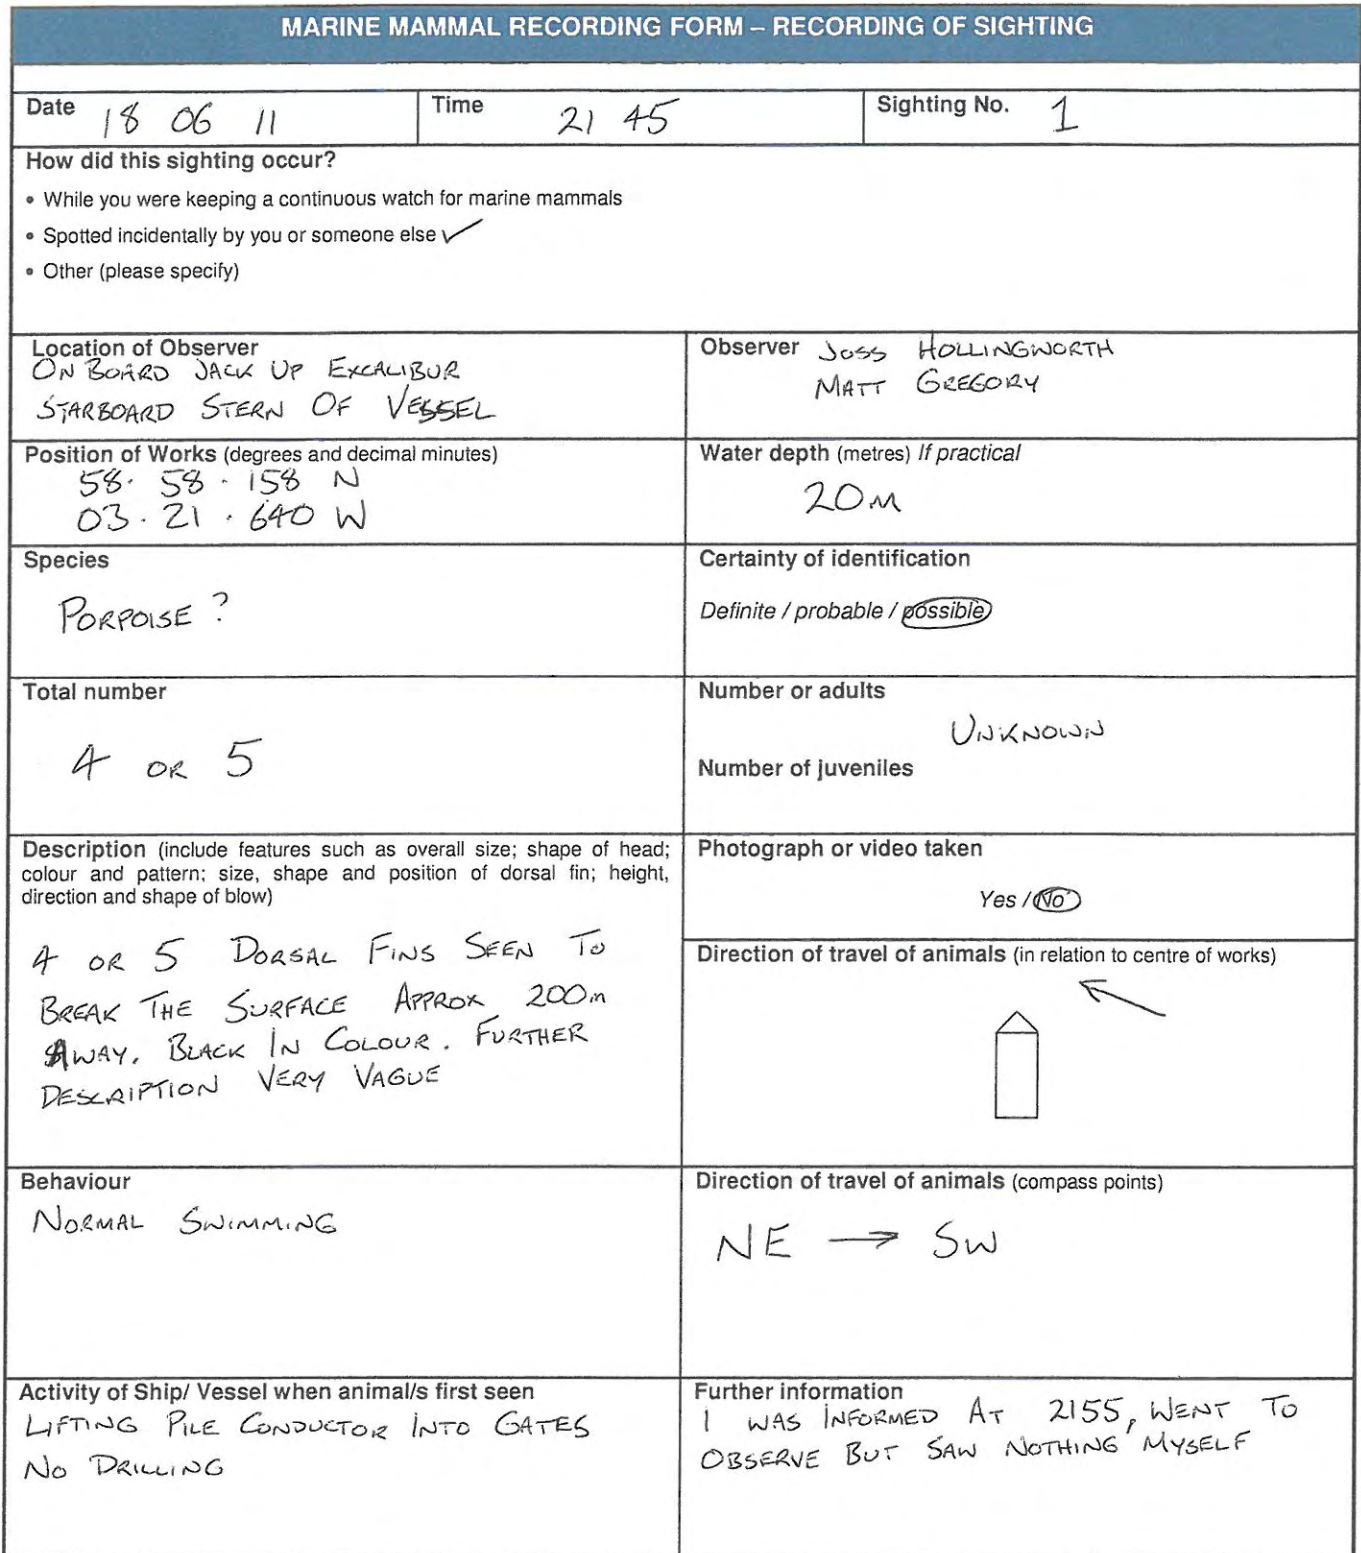 MARINE MAMMAL RECORDING FORM – RECORDING OF SIGHTING
Date 18 06 11
Time 21 45
Sighting No. 1
How did this sighting occur?
• While you were keeping a continuous watch for marine mammals
• Spotted incidentally by you or someone else ✓
• Other (please specify)
Location of Observer
ON BOARD JACK UP EXCALIBUR
STARBOARD STERN OF VESSEL
Observer JOSS HOLLINGWORTH
MATT GREGORY
Position of Works (degrees and decimal minutes)
58. 58. 158 N
03. 21. 640 W
Water depth (metres) If practical
20m
Species
PORPOISE ?
Certainty of identification
Definite / probable / possible
Total number
4 OR 5
Number or adults
UNKNOWN
Number of juveniles
Description (include features such as overall size; shape of head;
colour and pattern; size, shape and position of dorsal fin; height,
direction and shape of blow)
4 OR 5 DORSAL FINS SEEN TO
BREAK THE SURFACE APPROX 200m
AWAY. BLACK IN COLOUR. FURTHER
DESCRIPTION VERY VAGUE
Photograph or video taken
Yes / No
Direction of travel of animals (in relation to centre of works)
Behaviour
NORMAL SWIMMING
Direction of travel of animals (compass points)
NE → SW
Activity of Ship/ Vessel when animal/s first seen
LIFTING PILE CONDUCTOR INTO GATES
NO DRILLING
Further information
I WAS INFORMED AT 2155, WENT TO
OBSERVE BUT SAW NOTHING MYSELF